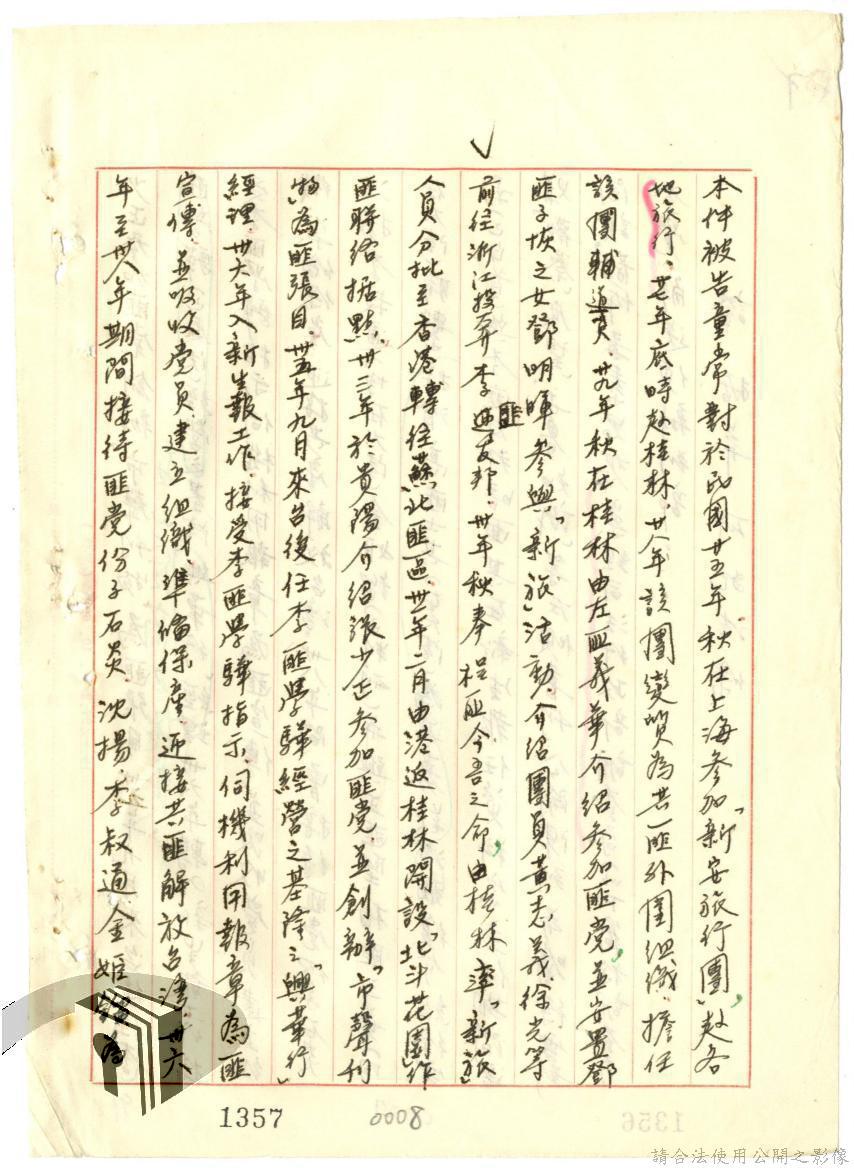 本件被告童常對於民國廿五年秋在上海參加「新安旅行團」赴各
地旅行、廿七年底時赴桂林、廿八年該團變質為共匪外圍組織、擔任
該團輔導員、廿九年秋在桂林由左匪義華介紹參加匪党、並安置鄧
匪子恢之女鄧明暉參與「新旅」活動、介紹團員黃志義、徐光等
前往浙江投奔李匪友邦、卅年秋奉程匪今吾之命、由桂林率「新旅」
人員分批至香港轉往蘇北匪區、卅一年二月由港返桂林開設「北斗花園」作
匪聯絡据點、卅三年於貴陽介紹張少正參加匪党、並創辦「市聲刊
物」為匪張目、卅五年九月來台後任李匪學驊經營之基隆之「興華行」
經理、卅六年入新生報工作、接受李匪學驊指示、伺機利用報章為匪
宣傳、並吸收党員、建立組織、準備保產、迎接共匪解放台灣、卅六
年至卅八年期間接待匪党份子石炎、沈揚、李叔通、金姬鎦為
1357
8000
1356
請合法使用公開之影像